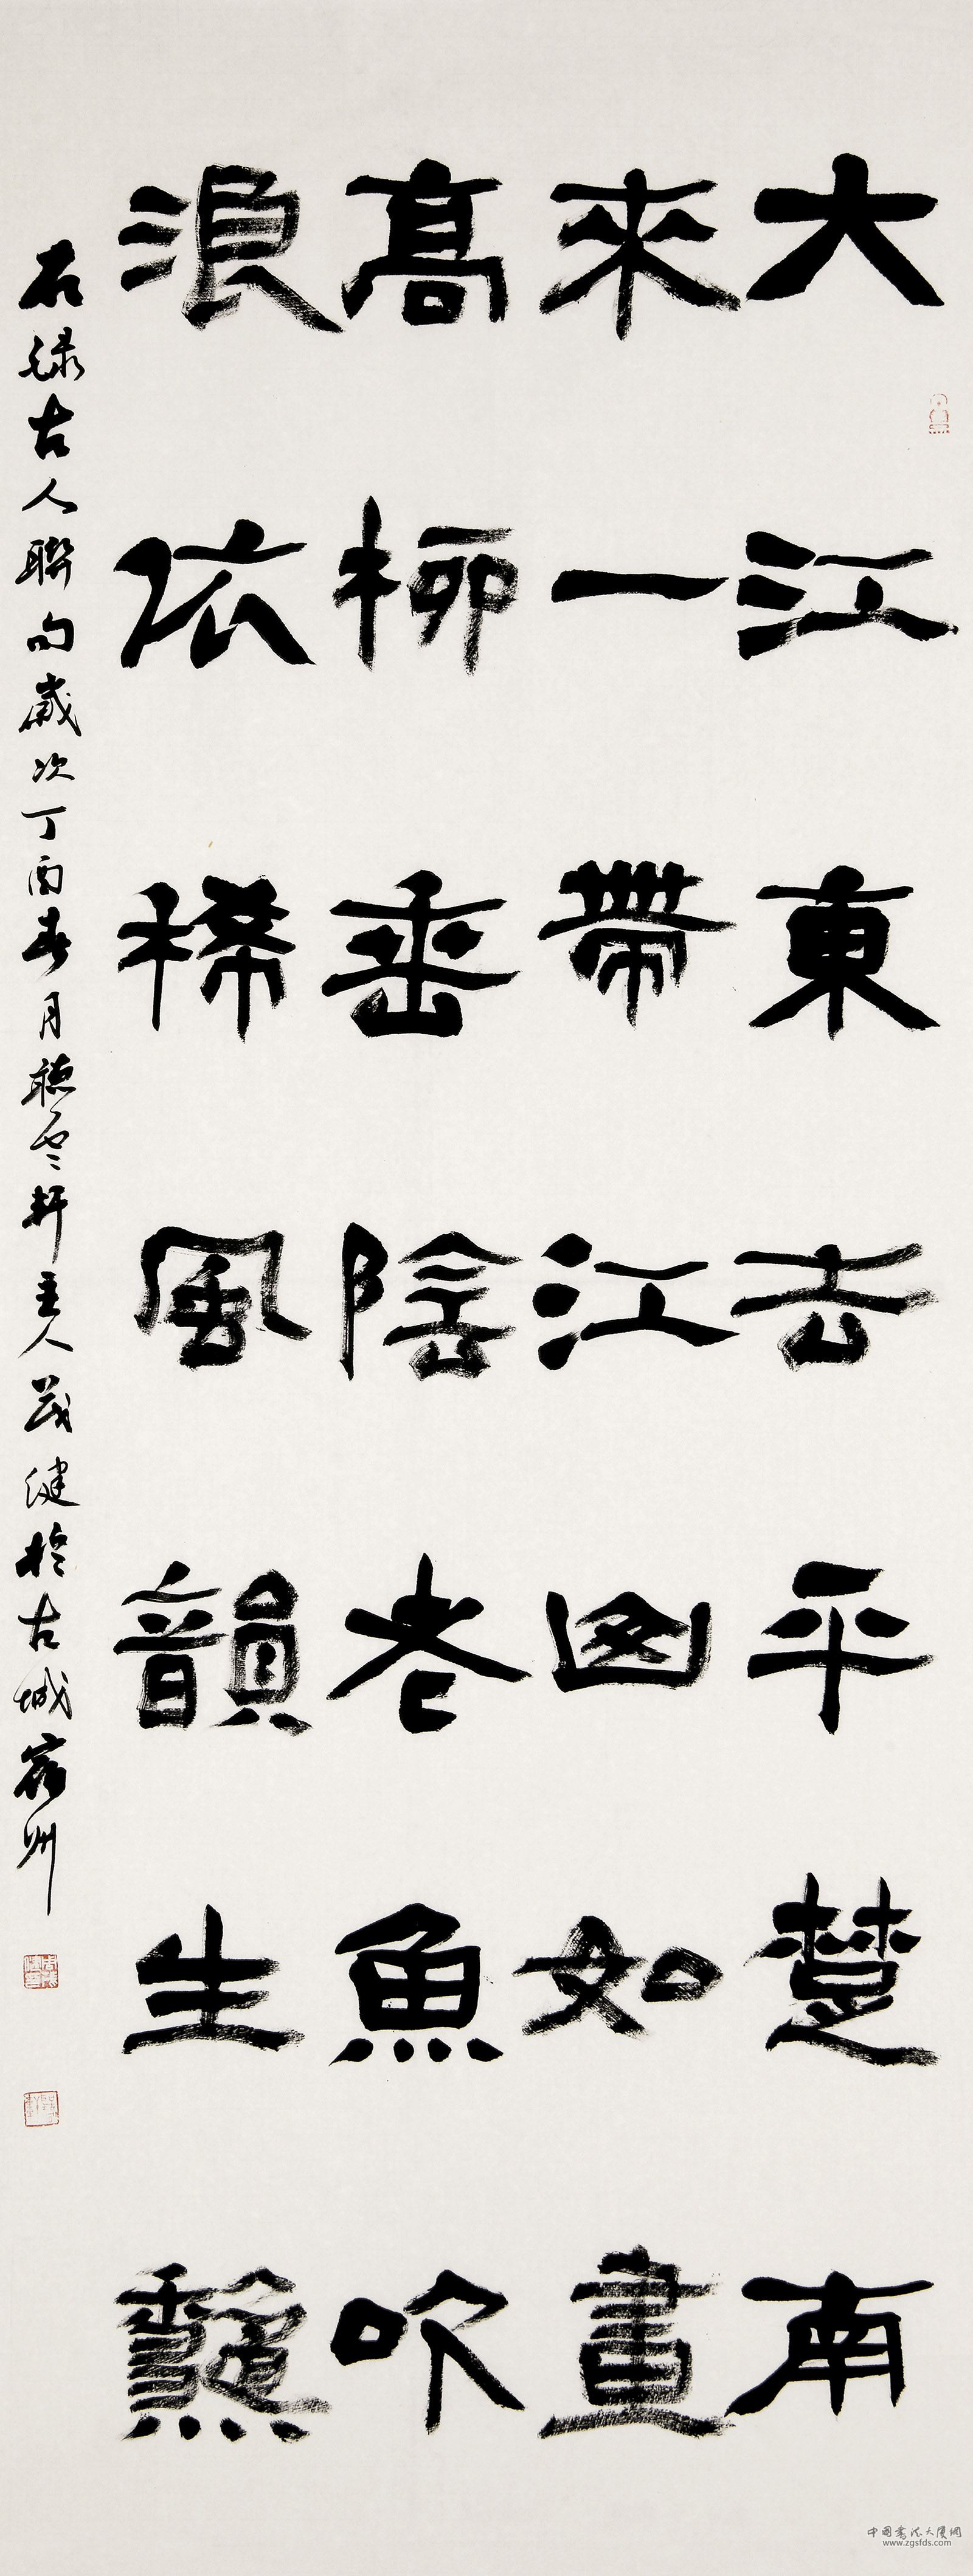 大江東去平楚南
來一帶江山如畫
高柳垂陰老魚吹
浪依稀風韻生
右录古人聯句歲次丁酉春月聽雪軒主人茂健於古城宿州
中國書法大廈網
www.zgsfds.com